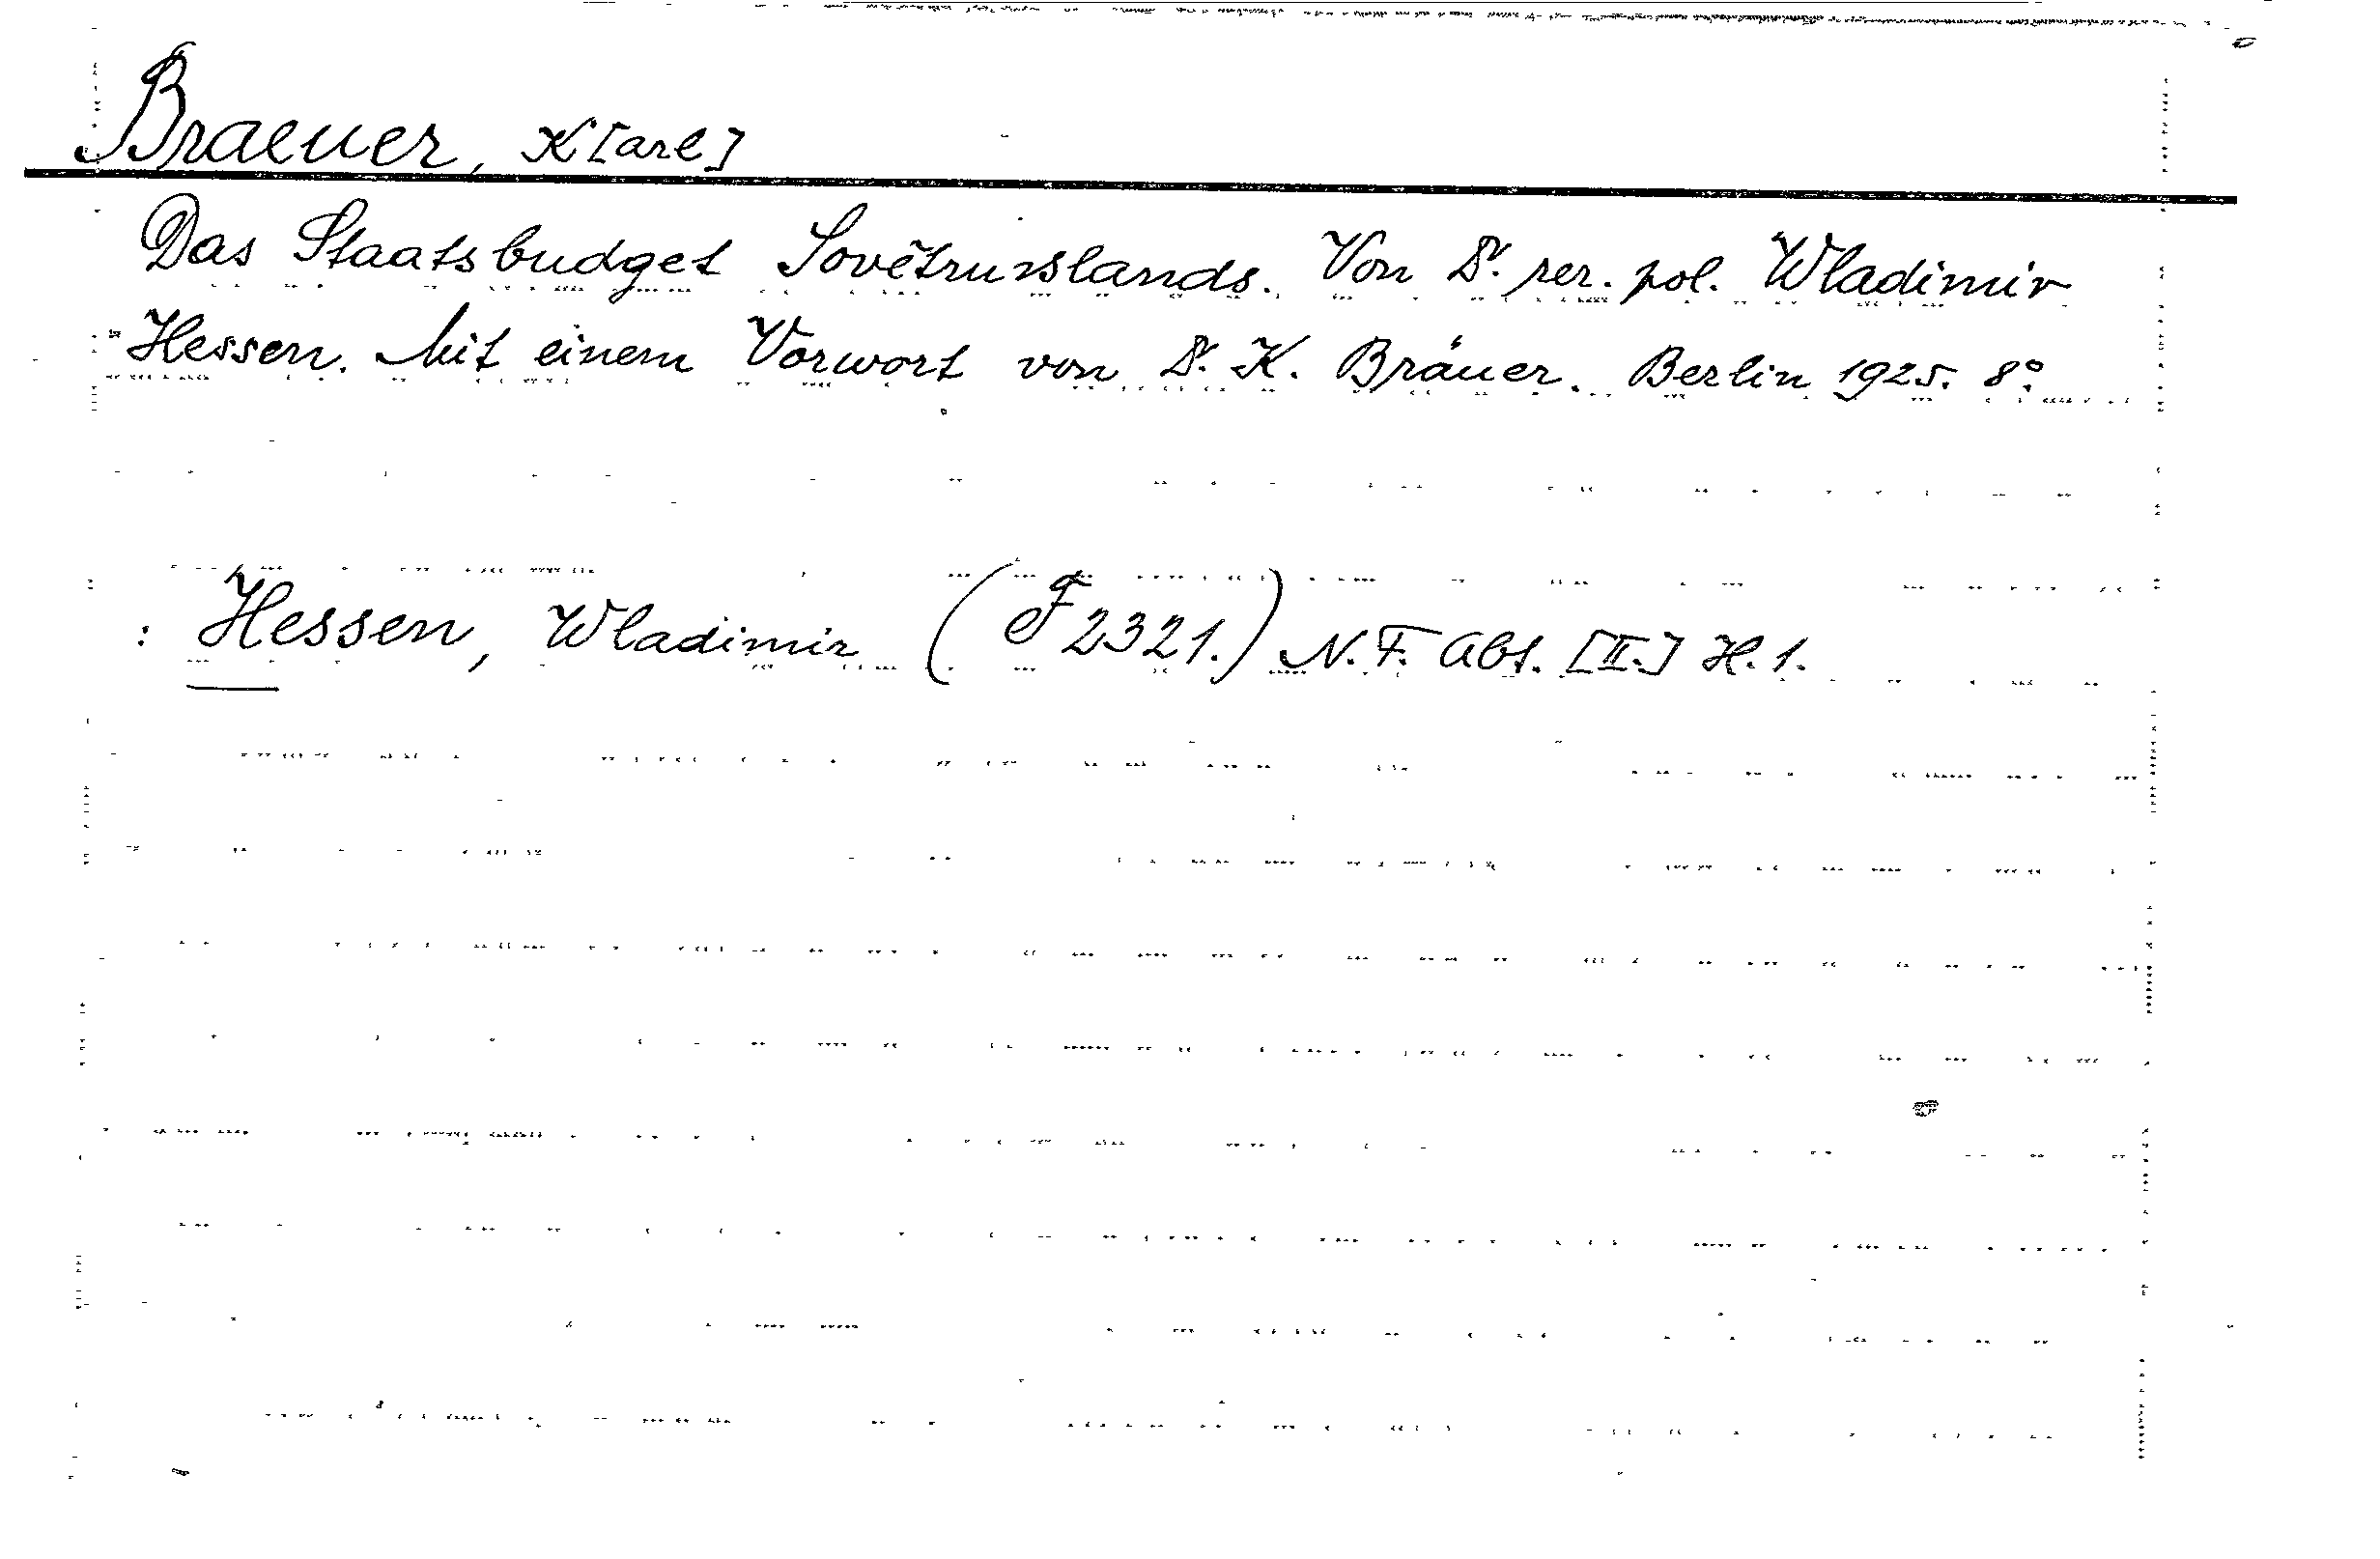 Braeuer, K[arl]
Das Staatsbudget Sovětrusslands. Von Dr. rer. pol. Wladimir
Hessen. Mit einem Vorwort von Dr. K. Bräuer. Berlin 1925. 8°.
: Hessen, Wladimir (F 2321.) N. F. Abt. [II.] H. 1.